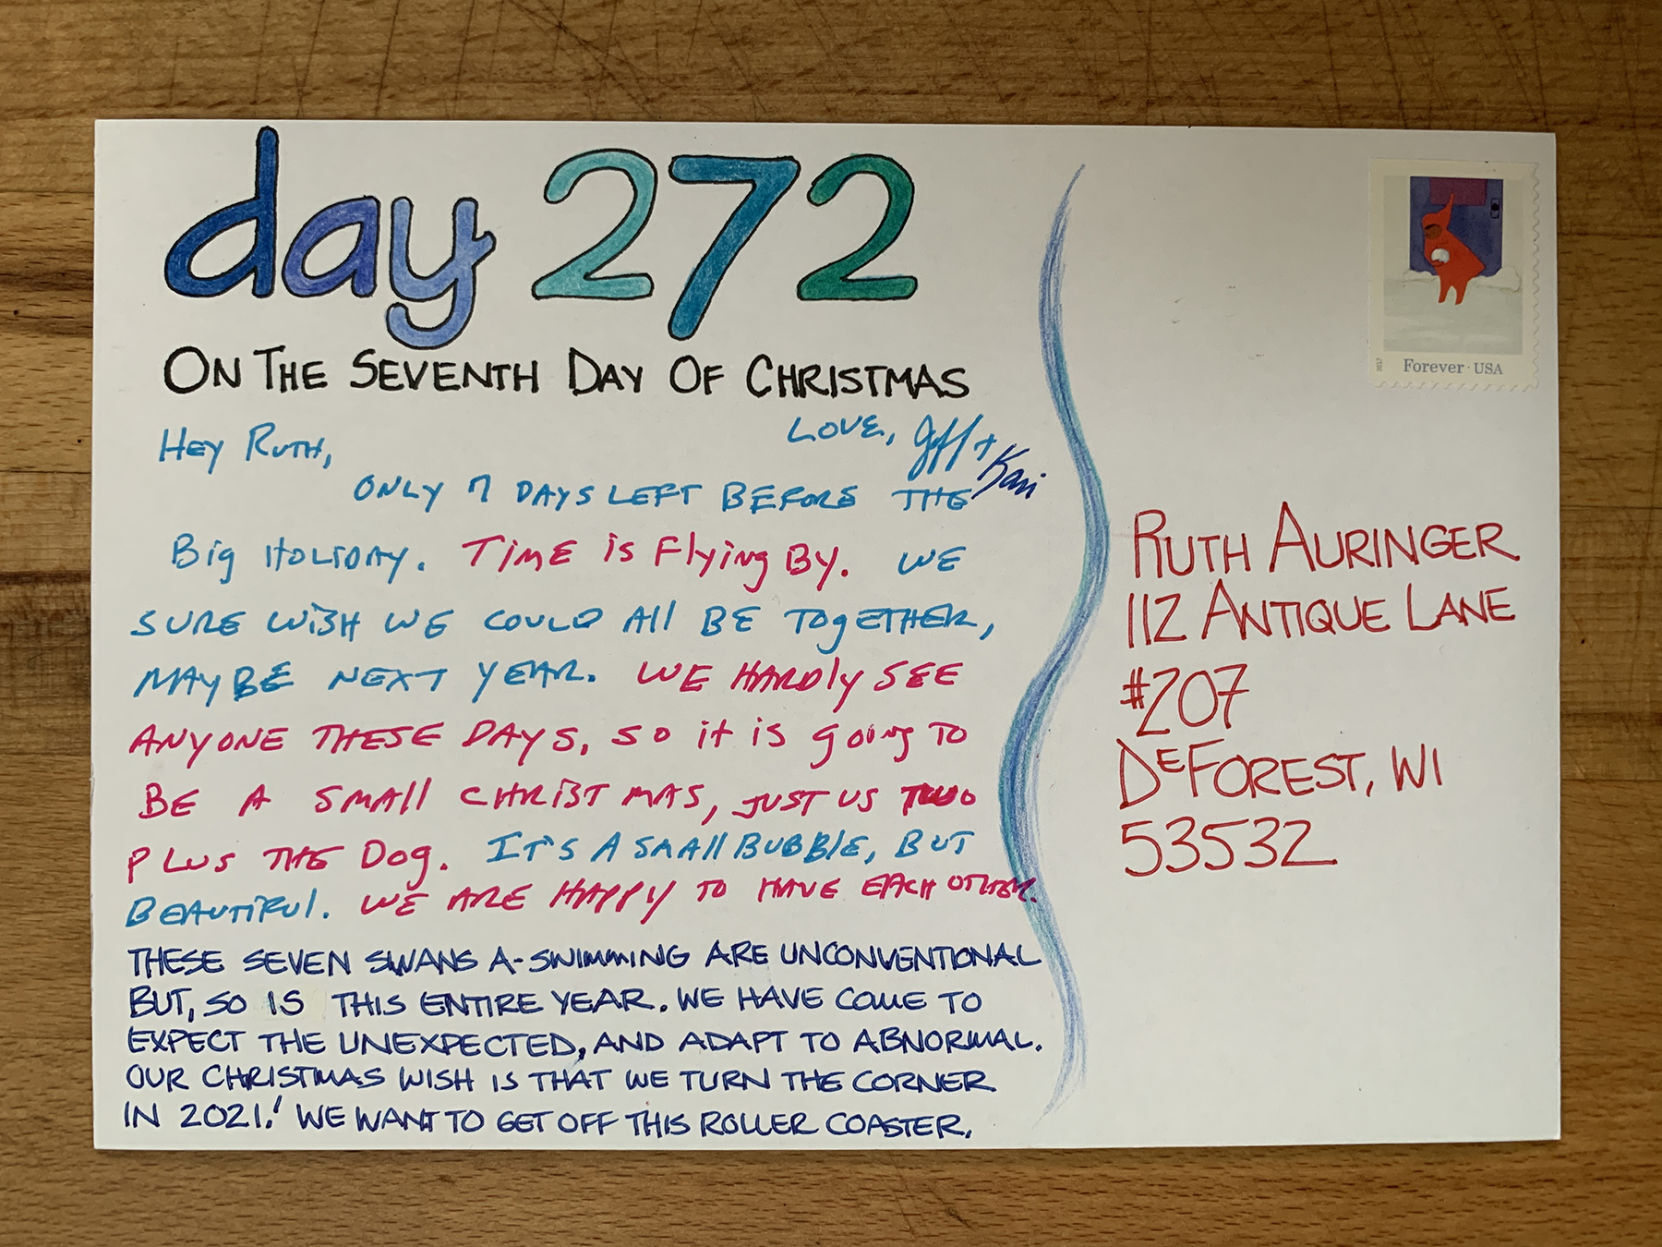 day 272
ON THE SEVENTH DAY OF CHRISTMAS
HEY RUTH,
LOVE, Jeff +
Kari
ONLY 7 DAYS LEFT BEFORE THE
Big HOLIDAY. TIME is Flying By. WE
SURE WISH WE COULD All BE TOgETHER,
MAYBE NEXT YEAR. WE HARDLY SEE
ANYONE THESE DAYS, SO it is going TO
BE A SMAll CHRISTMAS, JUST US TWO
PLUS THE Dog. IT'S A SMAll BUBBlE, BUT
BEAUTIFUl. WE ARE HAPPY TO HAVE EACH OTHER.
THESE SEVEN SWANS A-SWIMMING ARE UNCONVENTIONAL
BUT, SO IS THIS ENTIRE YEAR. WE HAVE COME TO
EXPECT THE UNEXPECTED, AND ADAPT TO ABNORMAL.
OUR CHRISTMAS WISH IS THAT WE TURN THE CORNER
IN 2021! WE WANT TO GET OFF THIS ROLLER COASTER.
2017
Forever · USA
RUTH AURINGER
112 ANTIQUE LANE
#207
DEFOREST, WI
53532